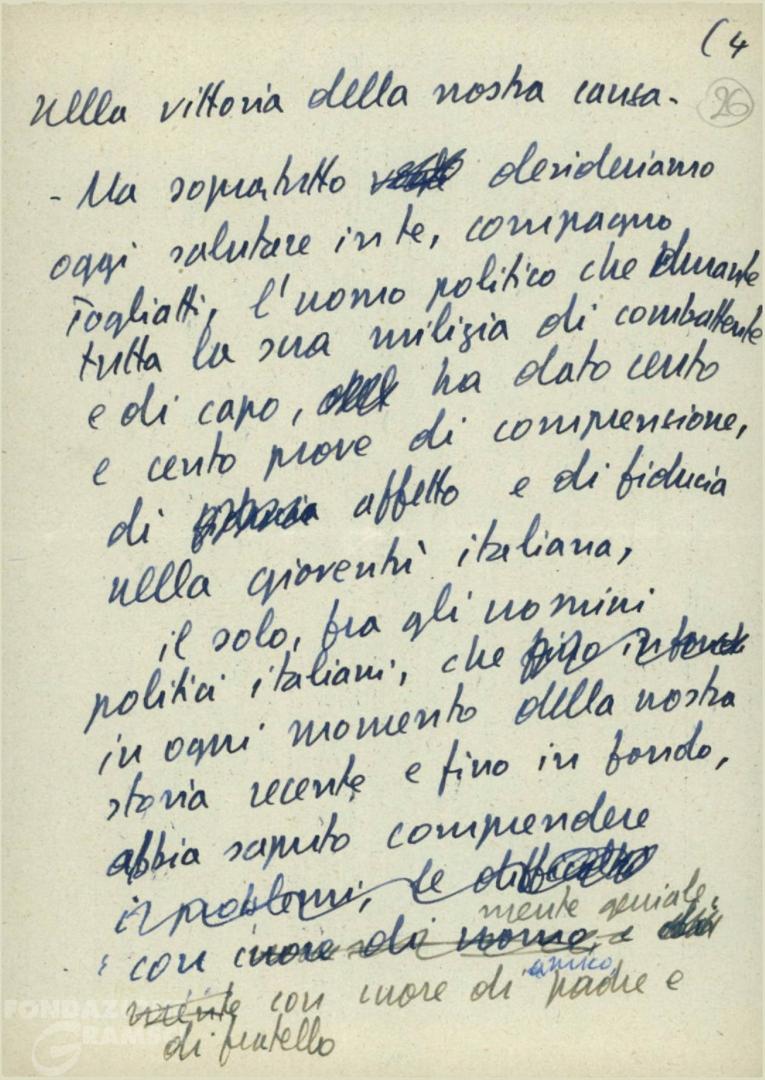 (4
26
nella vittoria della nostra causa.
- Ma sopratutto desideriamo
oggi salutare in te, compagno
Togliatti, l'uomo politico che durante
tutta la sua milizia di combattente
e di capo, ha dato cento
e cento prove di comprensione,
di fiducia affetto e di fiducia
nella gioventù italiana,
il solo, fra gli uomini
politici italiani, che fino in fondo
in ogni momento della nostra
storia recente e fino in fondo,
abbia saputo comprendere
i problemi, le difficoltà
mente geniale,
con cuore di uomo, e
amico,
mente con cuore di padre e
di fratello
FONDAZIONE
GRAMSCI